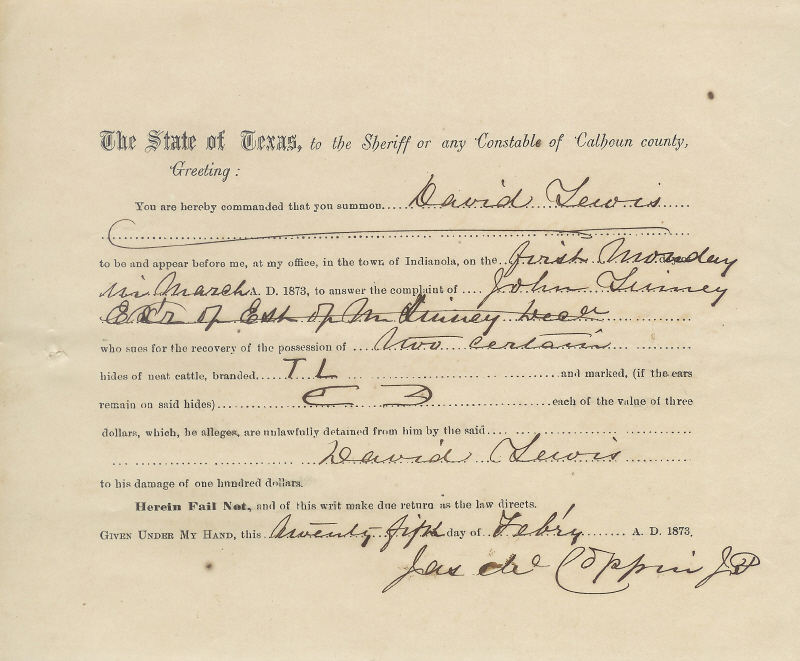 The State of Texas, to the Sheriff or any Constable of Calhoun county,
Greeting:
You are hereby commanded that you summon.... David Lewis
to be and appear before me, at my office, in the town of Indianola, on the first Monday
in March A. D. 1873, to answer the complaint of John
of Est of M
who sues for the recovery of the possession of two certain
hides of neat cattle, branded T L and marked, (if the ears
remain on said hides) each of the value of three
dollars, which, he alleges, are unlawfully detained from him by the said
David Lewis
to his damage of one hundred dollars.
Herein Fail Not, and of this writ make due return as the law directs.
Given Under My Hand, this twenty fifth day of Feb'ry A. D. 1873.
Jas Coppin JP